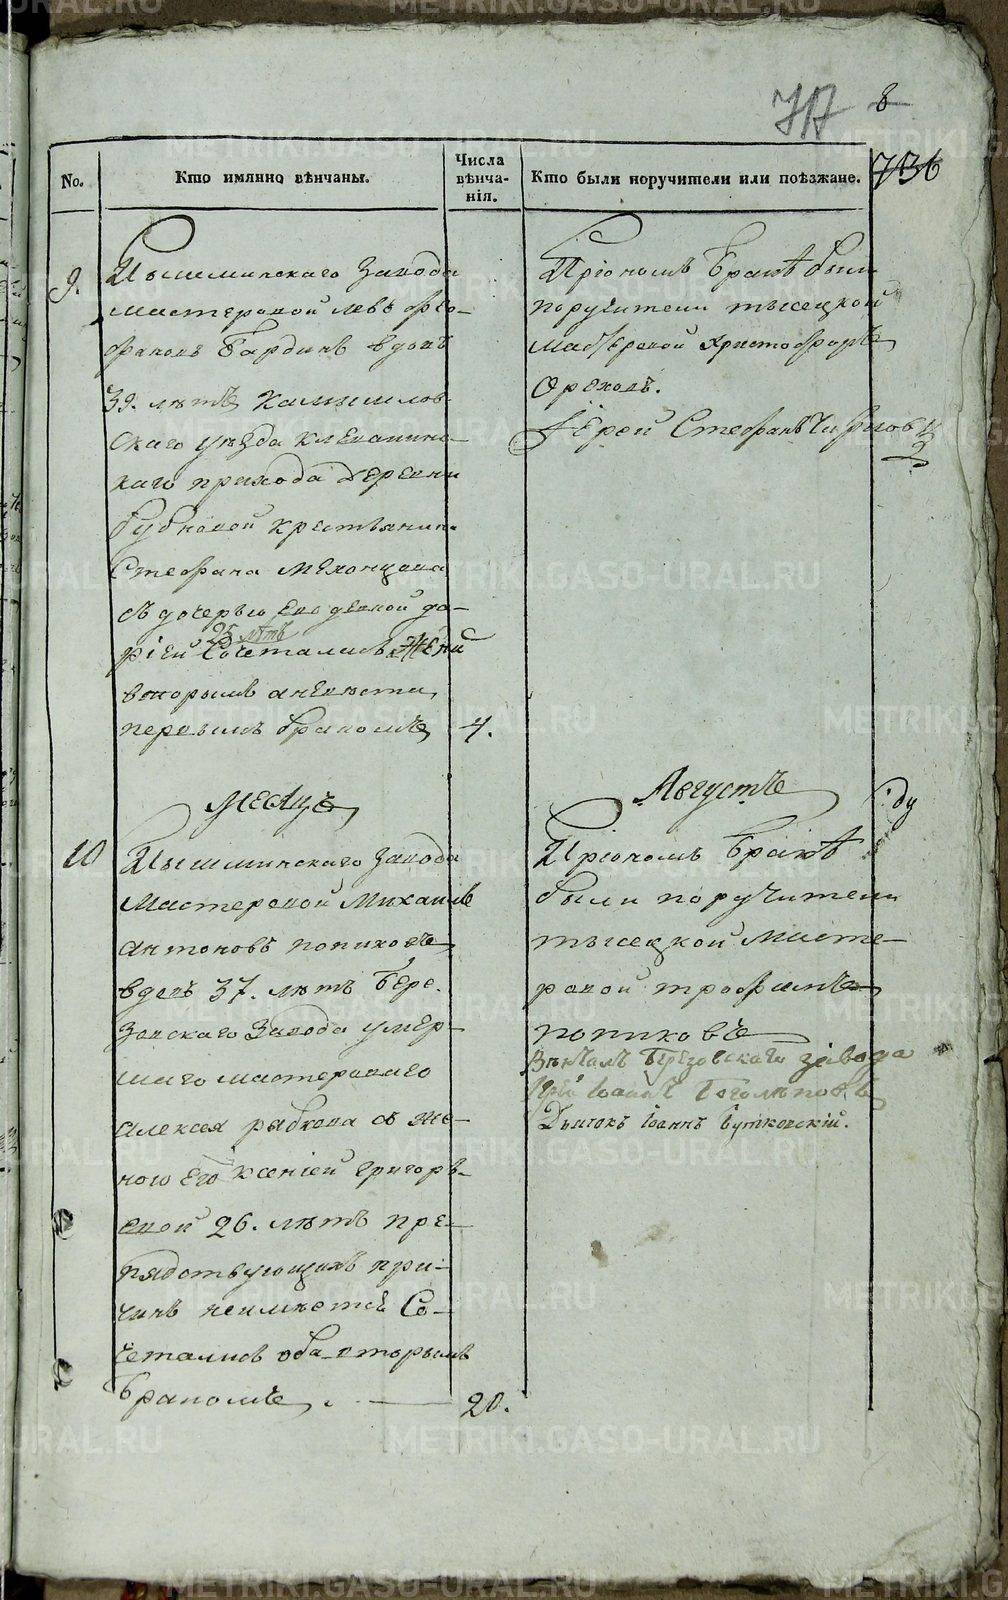 717 8
736
No. Кто имянно вѣнчаны. Числа вѣнчанія. Кто были поручители или поѣзжане.
9. Пышминскаго Завода
мастеровой левъ ѳео-
фановъ Бардинъ вдовъ
39. лѣтъ камышлов-
скаго уѣзда клевакинс-
каго прихода деревни
бубновой крестьянина
Стефана мехонцова
съ дочерью Ево девкой да-
25 лѣтъ
ріей Сочетались Жених
вторымъ аневеста
первымъ бракомъ 4.
Пріономъ Бракѣ были
поручители тысецкой
мастеровой христофоръ
Ореховъ.
Іерей Стефанъ
месяцъ Августъ
10 Пышминскаго Завода
Мастеровой Михаилъ
антоновъ попиковъ
вдовъ 37. лѣтъ Бере-
зовскаго Завода умер-
шаго мастероваго
алексея рябкова съ же-
ною его ксеніей григорь-
евой 26. лѣтъ пре-
пядствующихъ при-
чинъ неимѣется Со-
четались оба вторымъ
Бракомъ. 20.
Пріономъ Бракѣ
были поручители
тысецкой масте-
ровой трофимъ
попиковъ
Вѣнчалъ Березовскаго завода
Іерей Іоаннъ Боголѣповъ
Дьячокъ Іоаннъ Бутковскій.
METRIKI.GASO-URAL.RU